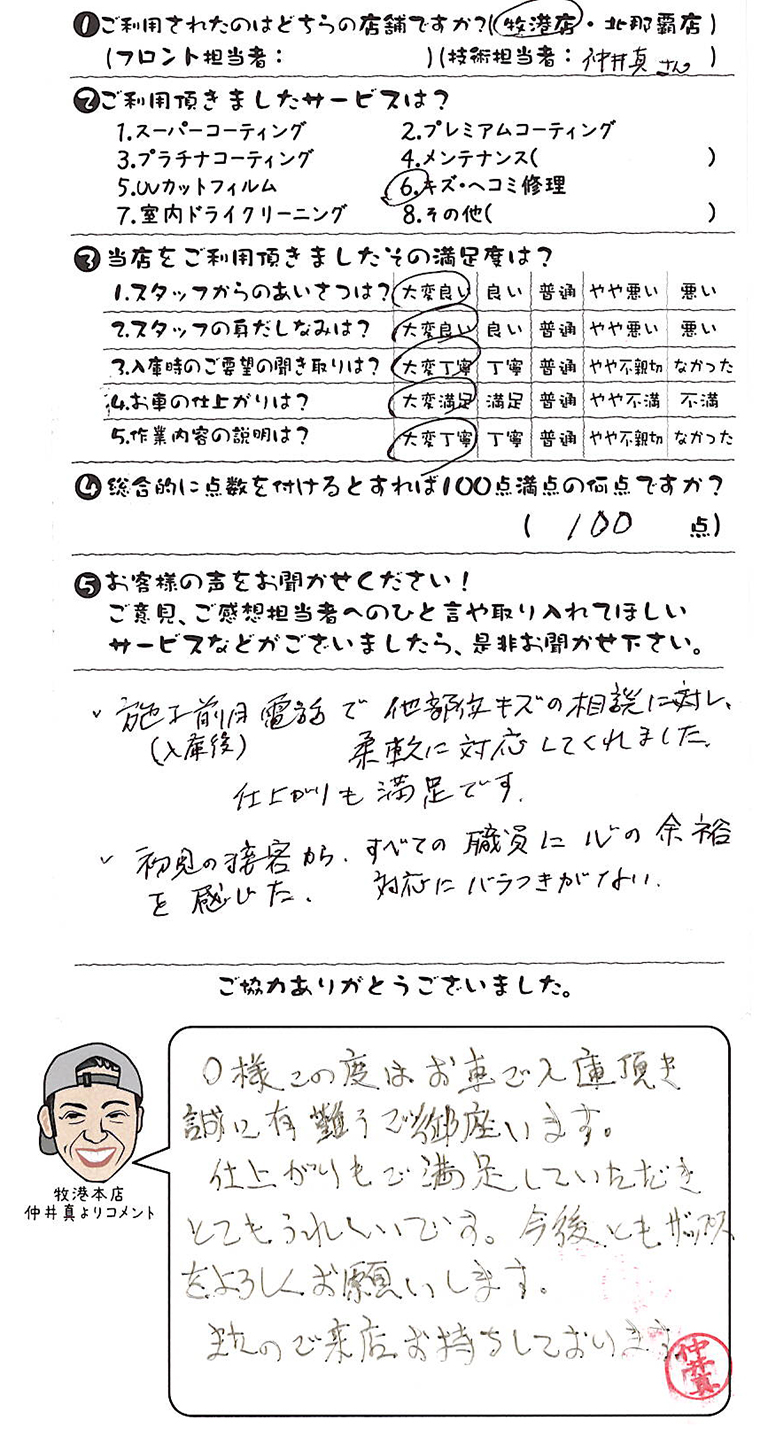 ❶ご利用されたのはどちらの店舗ですか?(牧港店・北那覇店)
(フロント担当者: )(技術担当者: 仲井真さん )
❷ご利用頂きましたサービスは?
1.スーパーコーティング 2.プレミアムコーティング
3.プラチナコーティング 4.メンテナンス( )
5.UVカットフィルム 6.キズ・ヘコミ修理
7.室内ドライクリーニング 8.その他( )
❸当店をご利用頂きましたその満足度は?
1.スタッフからのあいさつは? 大変良い 良い 普通 やや悪い 悪い
2.スタッフの身だしなみは? 大変良い 良い 普通 やや悪い 悪い
3.入庫時のご要望の聞き取りは? 大変丁寧 丁寧 普通 やや不親切 なかった
4.お車の仕上がりは? 大変満足 満足 普通 やや不満 不満
5.作業内容の説明は? 大変丁寧 丁寧 普通 やや不親切 なかった
❹総合的に点数を付けるとすれば100点満点の何点ですか?
( 100 点)
❺お客様の声をお聞かせください!
ご意見、ご感想担当者へのひと言や取り入れてほしい
サービスなどがございましたら、是非お聞かせ下さい。
施工前日電話で 他部位キズの相談に対し、
(入庫後) 柔軟に対応してくれました。
仕上がりも満足です。
初見の接客から、すべての職員に心の余裕
を感じた。 対応にバラつきがない。
ご協力ありがとうございました。
O様この度はお車ご入庫頂き
誠に有難うご御座います。
仕上がりもご満足していただき
とてもうれしいです。今後ともザップス
をよろしくお願いします。
またのご来店お持ちしております。
牧港本店
仲井真よりコメント
仲井真